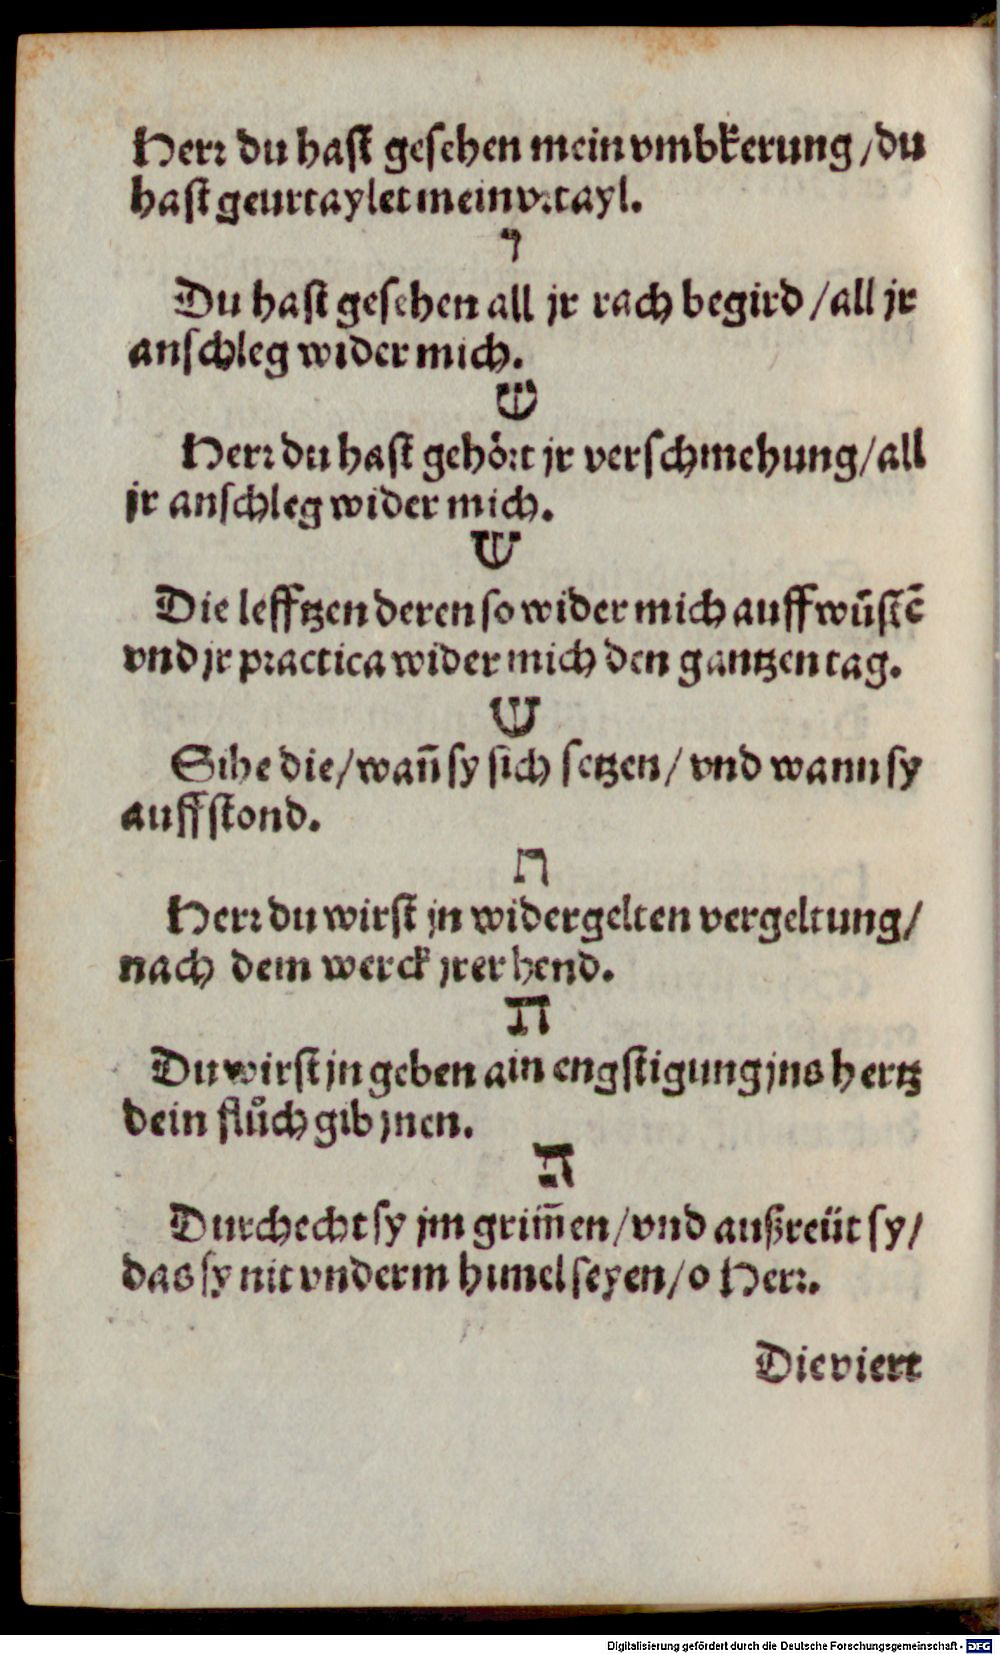 Herr du hast gesehen mein vmbkerung / du
hast geurtaylet mein vrtayl.
ר
Du hast gesehen all jr rach begird / all jr
anschleg wider mich.
ש
Herr du hast gehört jr verschmehung / all
jr anschleg wider mich.
ש
Die lefftzen deren so wider mich auff wůstē
vnd jr practica wider mich den gantzen tag.
ש
Sihe die / wañ sy sich setzen / vnd wann sy
auffstond.
ת
Herr du wirst jn widergelten vergeltung /
nach dem werck jrer hend.
ת
Du wirst jn geben ain engstigung jns hertz
dein flůch gib jnen.
ת
Durchecht sy jm grim̄en / vnd außreüt sy /
das sy nit vnderm himel seyen / o Herr.
Die viert
Digitalisierung gefördert durch die Deutsche Forschungsgemeinschaft - DFG